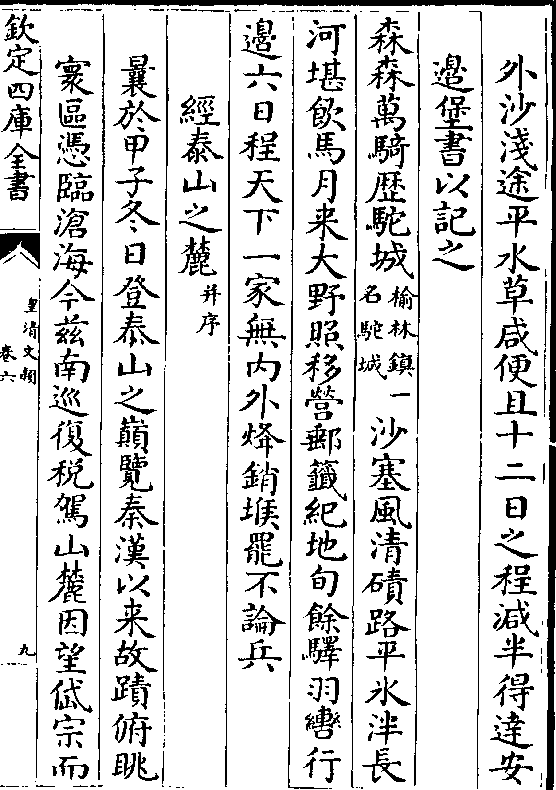 外沙淺途平水草咸便且十二日之程減半得達安
邉堡書以記之
森森萬騎歴駝城榆林鎮一名駝城沙塞風清磧路平氷泮長
河堪飲馬月来大野照移營郵籖紀地旬餘驛羽轡行
邉六日程天下一家無内外烽銷堠罷不論兵
經泰山之麓并序
曩於甲子冬日登泰山之巔覽秦漢以来故蹟俯眺
寰區憑臨滄海今兹南巡復税駕山麓因望岱宗而
欽定四庫全書
皇清文穎
卷六
九